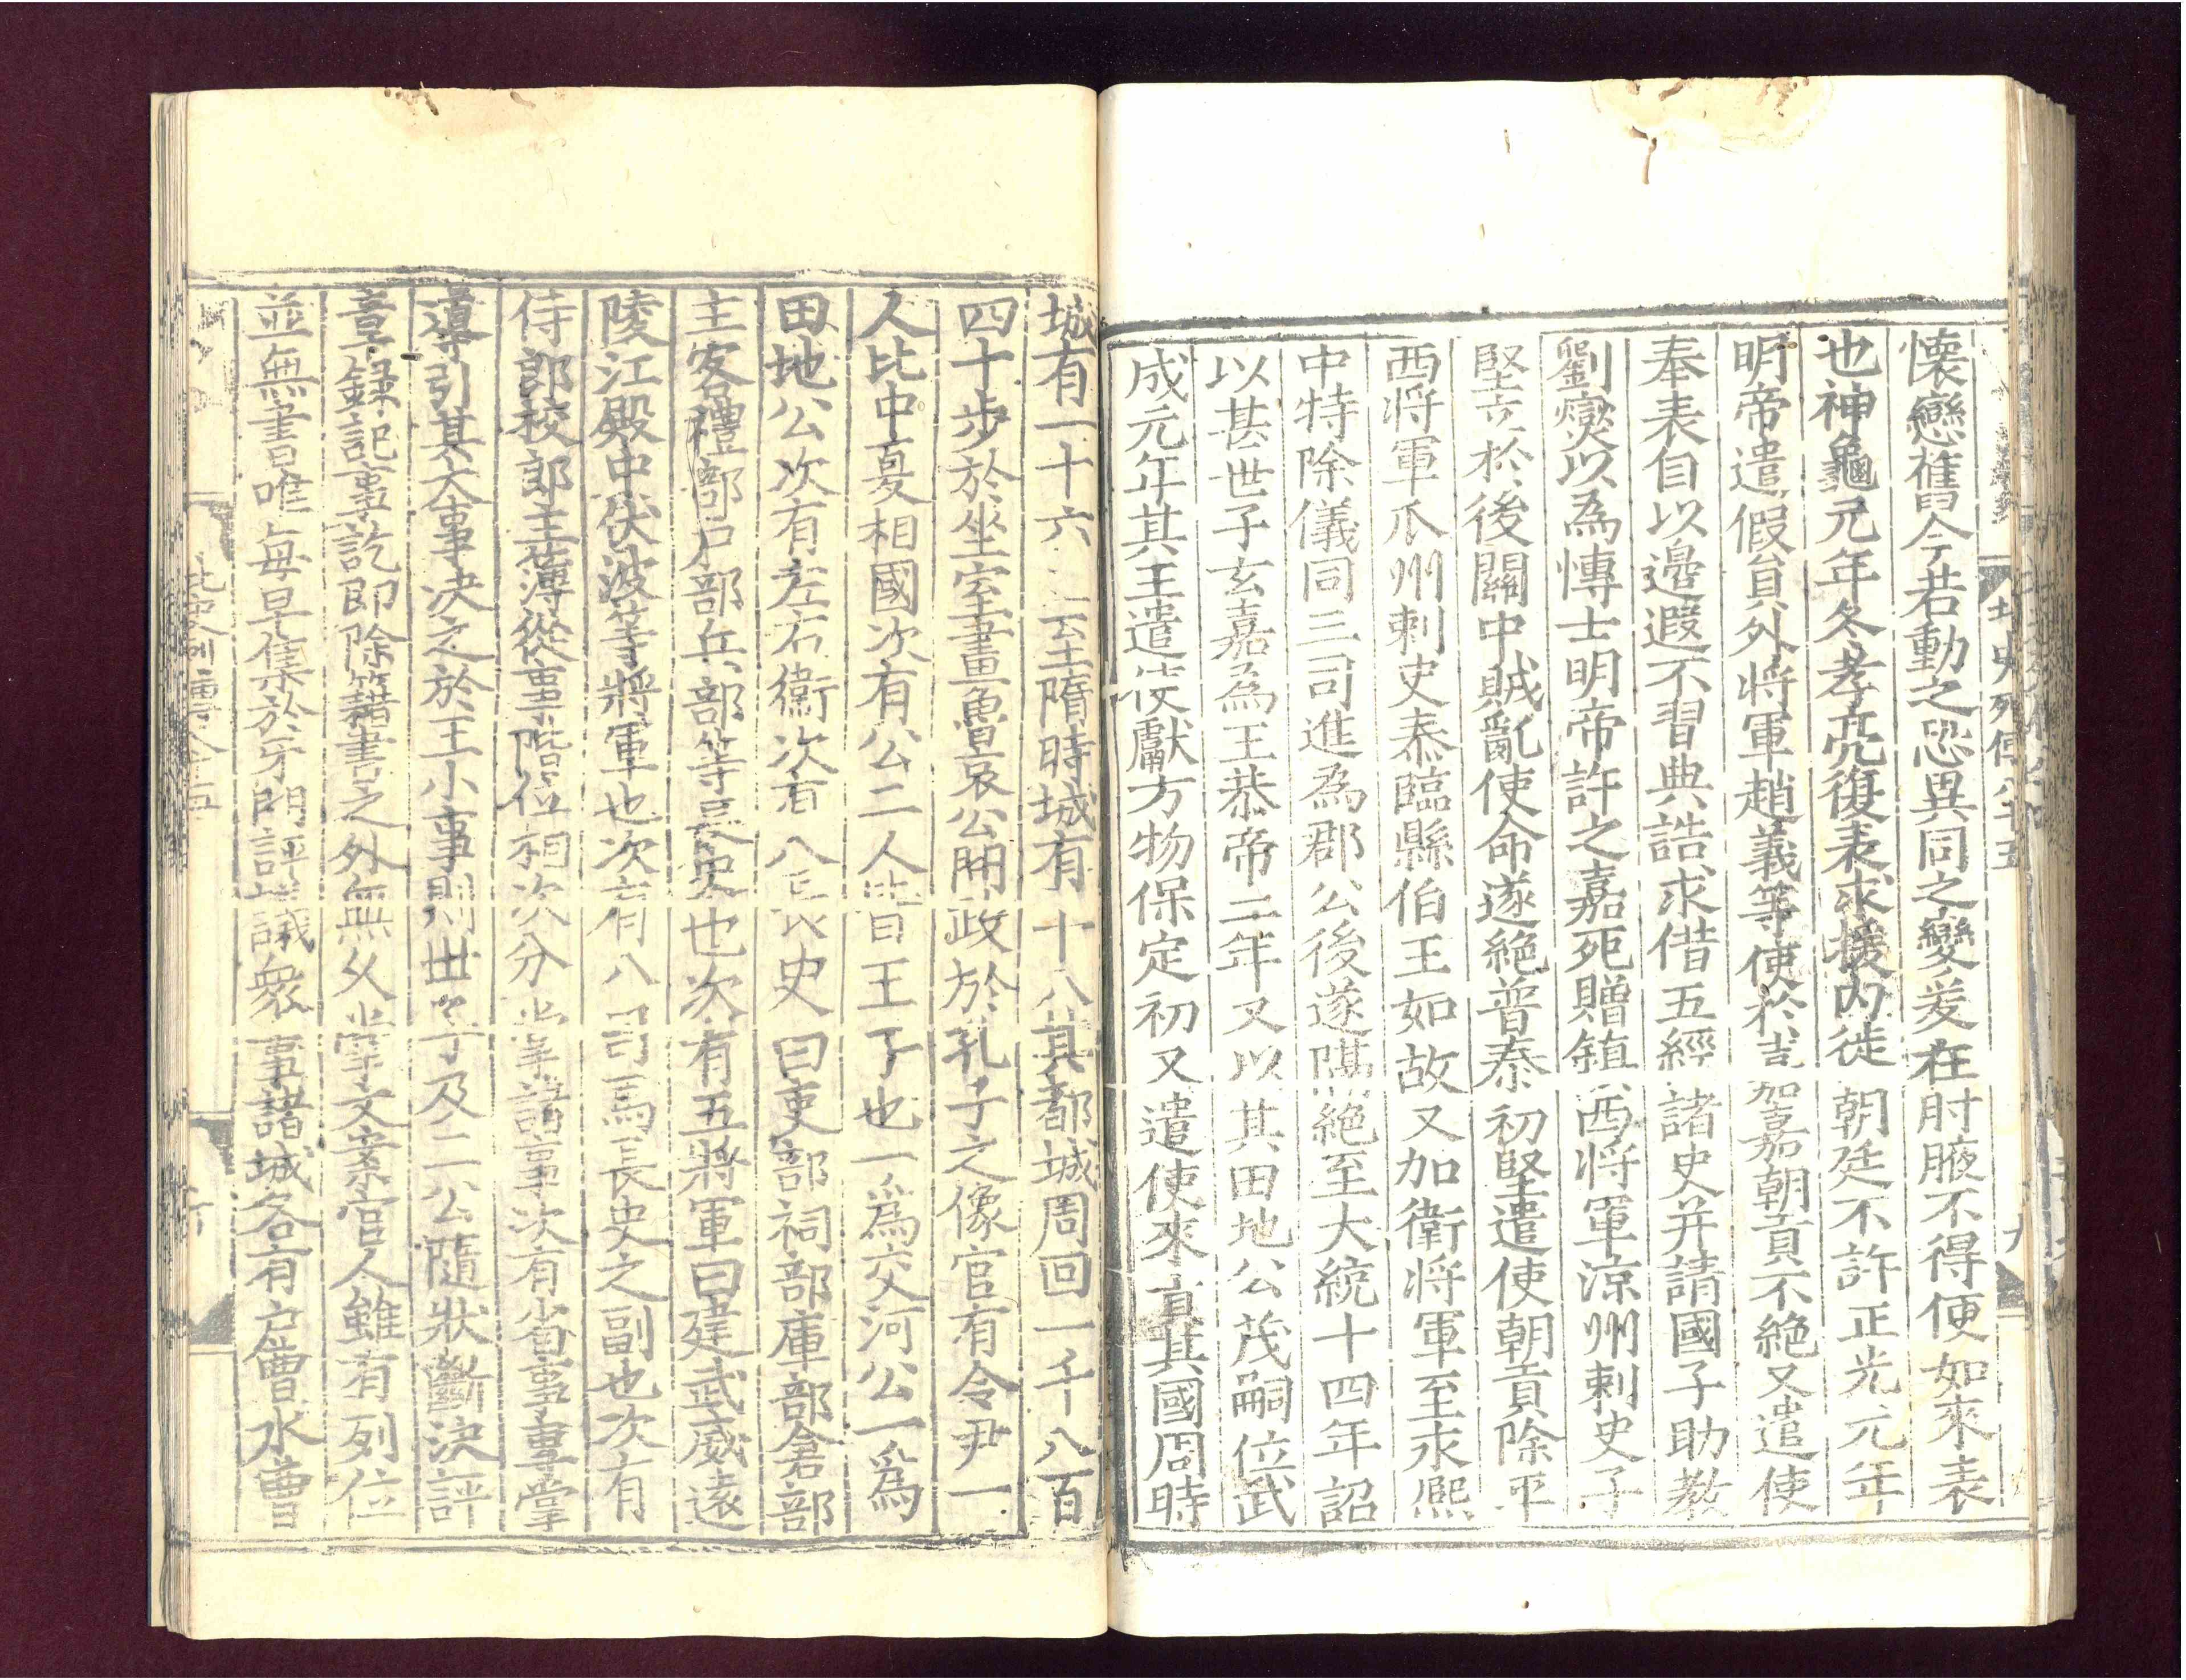 懷戀舊今若動之恐異同之變爰在肘腋不得便如來表
也神龜元年冬孝亮復表求援內徙朝廷不許正光元年
明帝遣假員外將軍趙義等使於嘉嘉朝貢不絕又遣使
奉表自以邊遐不習典誥求借五經諸史并請國子助敎
劉燮以為博士明帝許之嘉死贈鎮西將軍涼州刺史子
堅立於後關中賊亂使命遂絕普泰初堅遣使朝貢除平
西將軍瓜州刺史泰臨縣伯王如故又加衛將軍至永熙
中特除儀同三司進為郡公後遂隔絕至大統十四年詔
以其世子玄嘉為王恭帝二年又以其田地公茂嗣位武
成元年其王遣使獻方物保定初又遣使來貢其國周時
城有一十六至隋時城有十八其都城周回一千八百
四十步於坐室畫魯哀公問政於孔子之像官有令尹一
人比中夏相國次有公二人皆王子也一為交河公一為
田地公次有左右衛次有八長史曰吏部祠部庫部倉部
主客禮部戶部兵部等長史也次有五將軍曰建武威遠
陵江殿中伏波等將軍也次有八司馬長史之副也次有
侍郎校郎主簿從事階位相次分掌諸事次有省事專掌
導引其大事決之於王小事則世子及二公隨狀斷決評
章錄記事訖即除籍書之外無久掌文案官人雖有列位
並無曹唯每早集於牙門評議衆事諸城各有戶曹水曹
北史列傳八十五